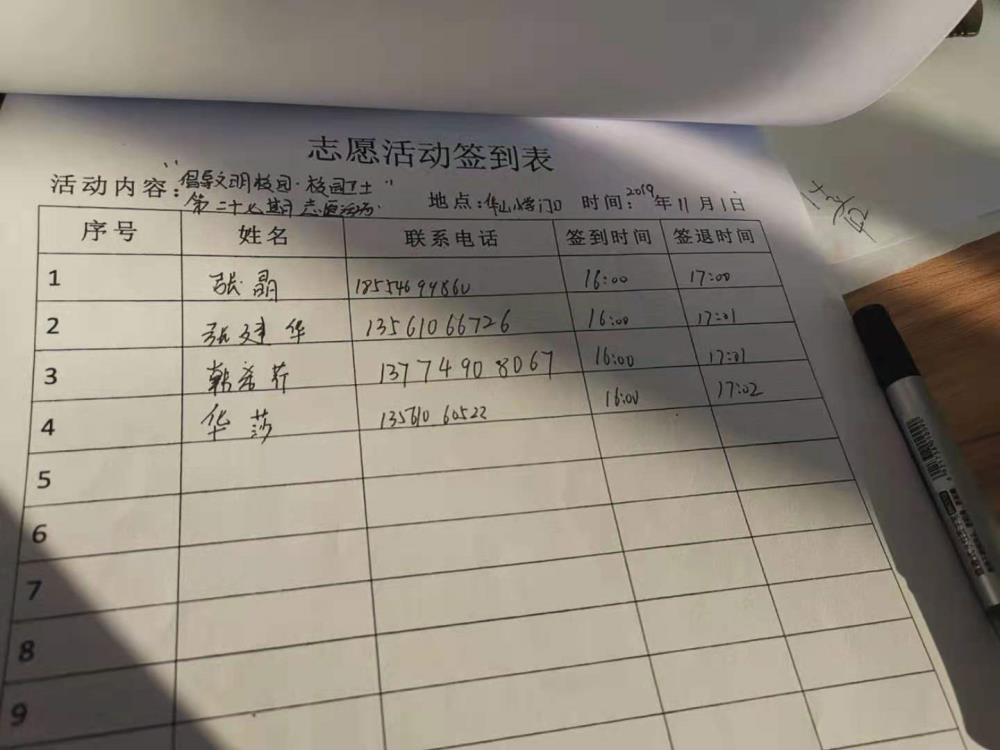 志愿活动签到表
活动内容:"倡导文明校园·校园卫士"
第二十七期志愿活动.
地点:华山小学门口 时间:2019年11月1日
序号 姓名 联系电话 签到时间 签退时间
1 张晶 18554699860 16:00 17:00
2 张建华 13561066726 16:00 17:01
3 韩希芹 13774908067 16:00 17:01
4 华莎 13561060522 16:00 17:02
5
6
7
8
9